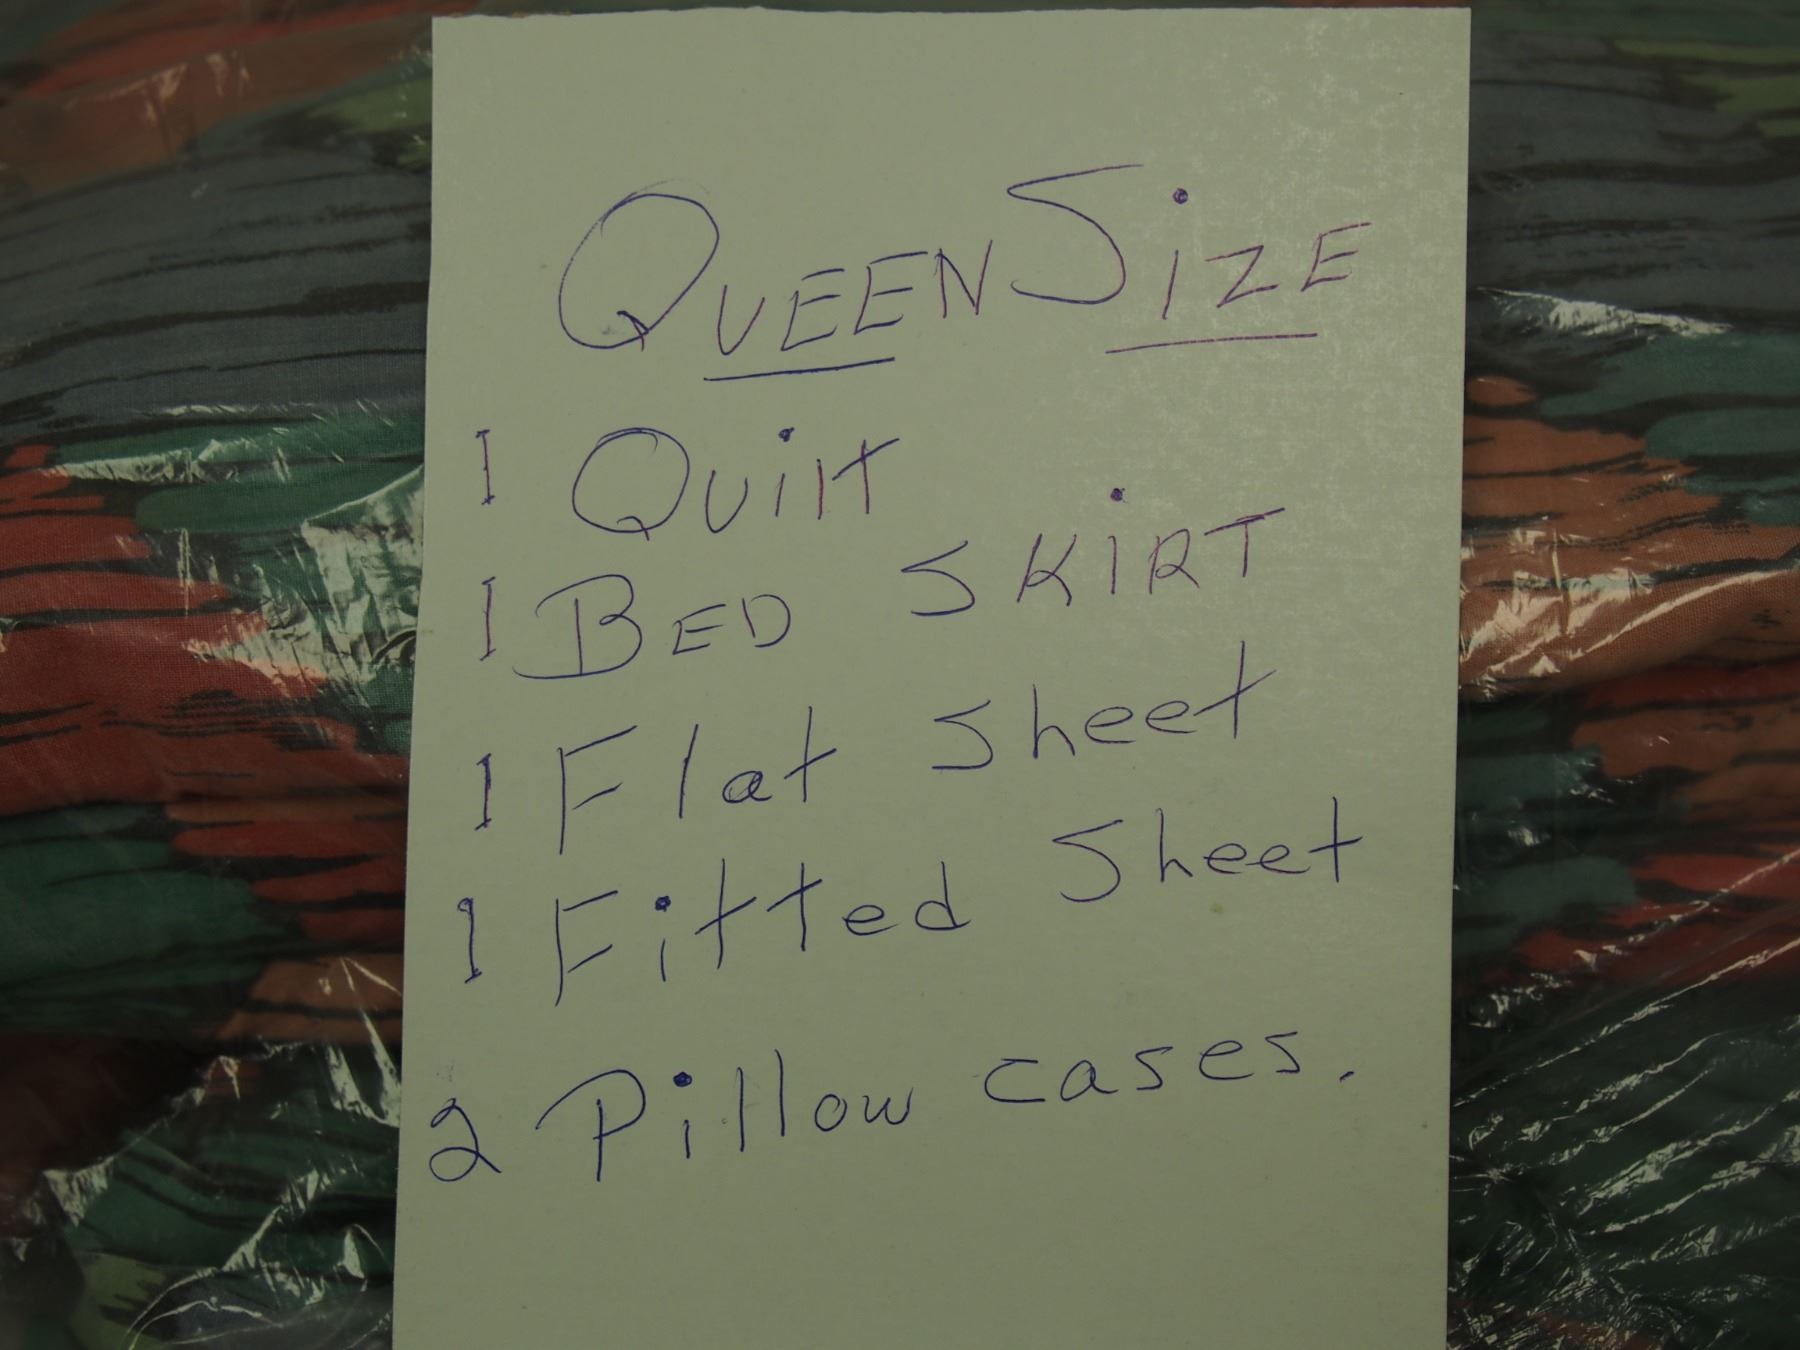 QUEEN SiZE
1 Quilt
1 BED SKiRT
1 Flat Sheet
1 Fitted Sheet
2 Pillow cases.